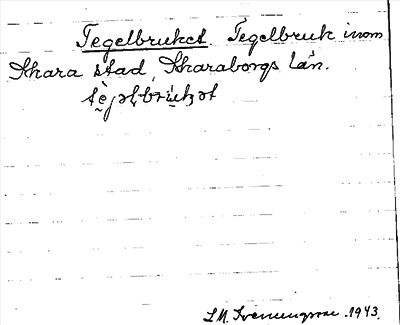 Tegelbruket. Tegelbruk inom
Skara stad, Skaraborgs län.
L.M. 1943.